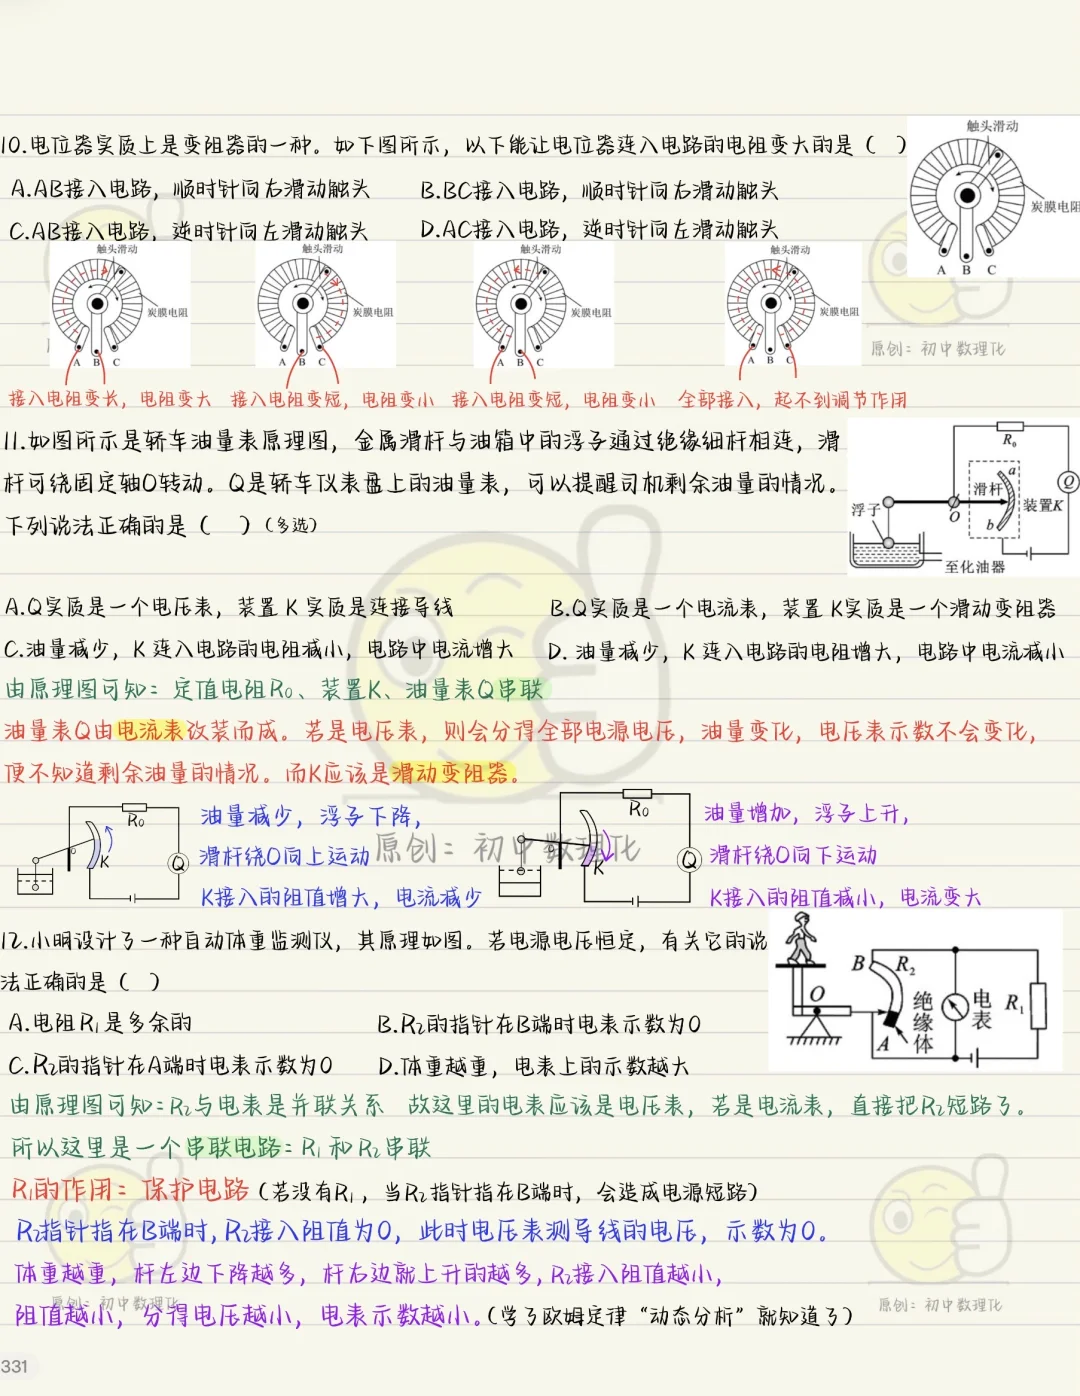 10.电位器实质上是变阻器的一种。如下图所示，以下能让电位器连入电路的电阻变大的是（ ）
A.AB接入电路，顺时针向右滑动触头 B.BC接入电路，顺时针向右滑动触头
C.AB接入电路，逆时针向左滑动触头 D.AC接入电路，逆时针向左滑动触头
触头滑动
炭膜电阻
A B C
触头滑动 触头滑动 触头滑动 触头滑动
炭膜电阻 炭膜电阻 炭膜电阻 炭膜电阻
A B C A B C A B C A B C
原创：初中数理化
接入电阻变长，电阻变大 接入电阻变短，电阻变小 接入电阻变短，电阻变小 全部接入，起不到调节作用
11.如图所示是轿车油量表原理图，金属滑杆与油箱中的浮子通过绝缘细杆相连，滑
杆可绕固定轴O转动。Q是轿车仪表盘上的油量表，可以提醒司机剩余油量的情况。
下列说法正确的是（ ）(多选)
R₀
a
Q
滑杆
浮子
O
装置K
b
至化油器
A.Q实质是一个电压表，装置 K 实质是连接导线 B.Q实质是一个电流表，装置 K实质是一个滑动变阻器
C.油量减少，K 连入电路的电阻减小，电路中电流增大 D. 油量减少，K 连入电路的电阻增大，电路中电流减小
由原理图可知：定值电阻R₀、装置K、油量表Q串联
油量表Q由电流表改装而成。若是电压表，则会分得全部电源电压，油量变化，电压表示数不会变化，
便不知道剩余油量的情况。而K应该是滑动变阻器。
R₀
K
Q
油量减少，浮子下降，
滑杆绕O向上运动
K接入的阻值增大，电流减少
原创：初中数理化
R₀
K
Q
油量增加，浮子上升，
滑杆绕O向下运动
K接入的阻值减小，电流变大
12.小明设计了一种自动体重监测仪，其原理如图。若电源电压恒定，有关它的说
法正确的是（ ）
A.电阻R₁是多余的 B.R₂的指针在B端时电表示数为0
C.R₂的指针在A端时电表示数为0 D.体重越重，电表上的示数越大
B R₂
O
绝缘体
电表
R₁
A
由原理图可知：R₂与电表是并联关系 故这里的电表应该是电压表，若是电流表，直接把R₂短路了。
所以这里是一个串联电路：R₁ 和 R₂串联
R₁的作用：保护电路（若没有R₁，当R₂指针指在B端时，会造成电源短路）
R₂指针指在B端时，R₂接入阻值为0，此时电压表测导线的电压，示数为0。
体重越重，杆左边下降越多，杆右边就上升的越多，R₂接入阻值越小，
原创：初中数理化
原创：初中数理化
阻值越小，分得电压越小，电表示数越小。（学了欧姆定律“动态分析”就知道了）
331